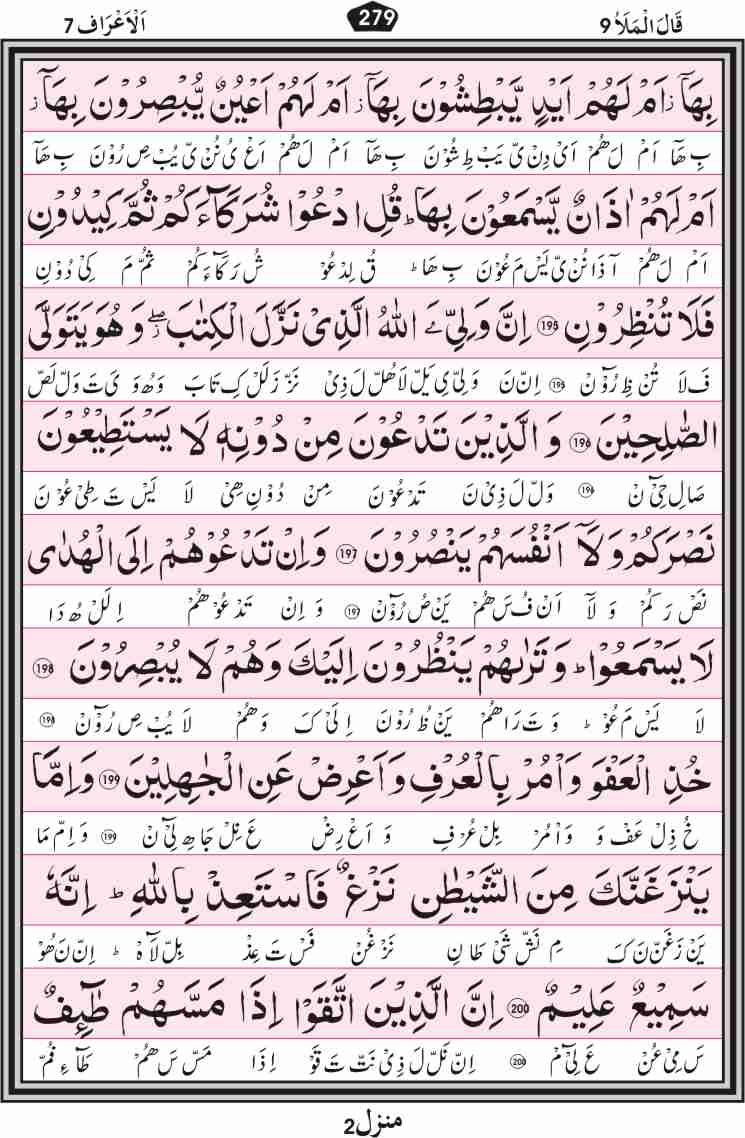 قَالَ الْمَلَاُ 9 279 اَلْاَعْرَاف 7
بِهَاۤ ز اَمْ لَهُمْ اَيْدٍ يَّبْطِشُوْنَ بِهَاۤ ز اَمْ لَهُمْ اَعْيُنٌ يُّبْصِرُوْنَ بِهَاۤ ز
بِ هَاۤ اَمْ لَ هُمْ اَىْ دِنْ ىّ يَبْ طِ شُوْنَ بِ هَاۤ اَمْ لَ هُمْ اَعْ ىُ نُنْ ىّ يُبْ صِ رُوْنَ بِ هَاۤ
اَمْ لَهُمْ اٰذَانٌ يَّسْمَعُوْنَ بِهَا ؕ قُلِ ادْعُوْا شُرَكَآءَكُمْ ثُمَّ كِيْدُوْنِ
اَمْ لَ هُمْ آ ذَا نُنْ ىّ يَسْ مَ عُوْنَ بِ هَا ؕ قُ لِدْ عُوْ شُ رَ كَآءَ كُمْ ثُمَّ مَ كِىْ دُوْنِ
فَلَا تُنْظِرُوْنِ 195 اِنَّ وَلِيِّ ـَۧ اللّٰهُ الَّذِىْ نَزَّلَ الْكِتٰبَ ۖ ز وَ هُوَ يَتَوَلَّى
فَ لَا تُنْ ظِ رُوْنْ 195 اِنّ نَ وَ لِىّ ىِ ىَلّ لَا هُلّ لَ ذِىْ نَزّ زَ لَلْ كِ تَابَ وَ هُ وَ ىَ تَ وَلّ لَصّ
الصّٰلِحِيْنَ 196 وَ الَّذِيْنَ تَدْعُوْنَ مِنْ دُوْنِهٖ لَا يَسْتَطِيْعُوْنَ
صَا لِ حِىْ نْ 196 وَلّ لَ ذِىْ نَ تَدْ عُوْ نَ مِنْ دُوْ نِ هِىْ لَا يَسْ تَ طِىْ عُوْ نَ
نَصْرَكُمْ وَ لَاۤ اَنْفُسَهُمْ يَنْصُرُوْنَ 197 وَ اِنْ تَدْعُوْهُمْ اِلَى الْهُدٰى
نَصْ رَ كُمْ وَ لَاۤ اَنْ فُ سَ هُمْ يَنْ صُ رُوْنْ 197 وَ اِنْ تَدْ عُوْ هُمْ اِ لَلْ هُ دَا
لَا يَسْمَعُوْا ؕ وَ تَرٰىهُمْ يَنْظُرُوْنَ اِلَيْكَ وَ هُمْ لَا يُبْصِرُوْنَ 198
لَا يَسْ مَ عُوْ ؕ وَ تَ رَا هُمْ يَنْ ظُ رُوْنَ اِ لَىْ كَ وَ هُمْ لَا يُبْ صِ رُوْنْ 198
خُذِ الْعَفْوَ وَ اْمُرْ بِالْعُرْفِ وَ اَعْرِضْ عَنِ الْجٰهِلِيْنَ 199 وَ اِمَّا
خُ ذِلْ عَفْ وَ وَاْ مُرْ بِلْ عُرْ فِ وَ اَعْ رِضْ عَ نِلْ جَا هِ لِىْ نْ 199 وَ اِمّ مَا
يَنْزَغَنَّكَ مِنَ الشَّيْطٰنِ نَزْغٌ فَاسْتَعِذْ بِاللّٰهِ ؕ اِنَّهٗ
يَنْ زَغَنّ نَ كَ مِ نَشّ شَىْ طَا نِ نَزْ غُنْ فَسْ تَ عِذْ بِلّ لَا هْ ؕ اِنّ نَ هُوْ
سَمِيْعٌ عَلِيْمٌ 200 اِنَّ الَّذِيْنَ اتَّقَوْا اِذَا مَسَّهُمْ طٰٓئِفٌ
سَ مِىْ عُنْ عَ لِىْ مْ 200 اِنّ نَلّ لَ ذِىْ نَتّ تَ قَوْ اِذَا مَسّ سَ هُمْ طَآ ءِ فُمّ
منزل 2